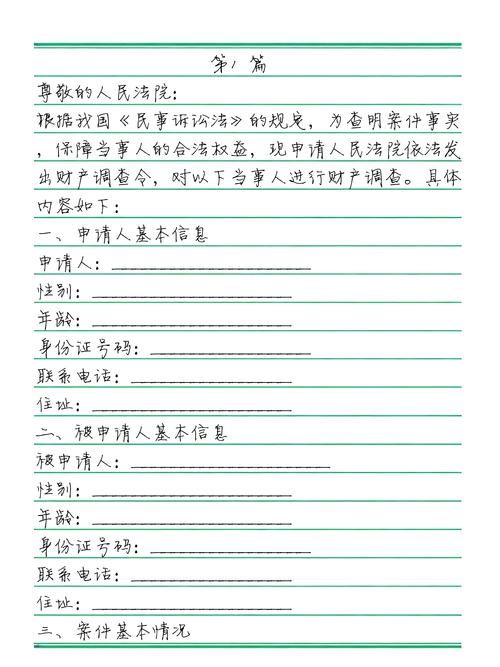 第1篇
尊敬的人民法院：
根据我国《民事诉讼法》的规定，为查明案件事实
，保障当事人的合法权益，现申请人民法院依法发
出财产调查令，对以下当事人进行财产调查。具体
内容如下：
一、申请人基本信息
申请人：____________________
性别：____________________
年龄：____________________
身份证号码：________________
联系电话：________________
住址：____________________
二、被申请人基本信息
被申请人：____________________
性别：____________________
年龄：____________________
身份证号码：________________
联系电话：________________
住址：____________________
三、案件基本情况